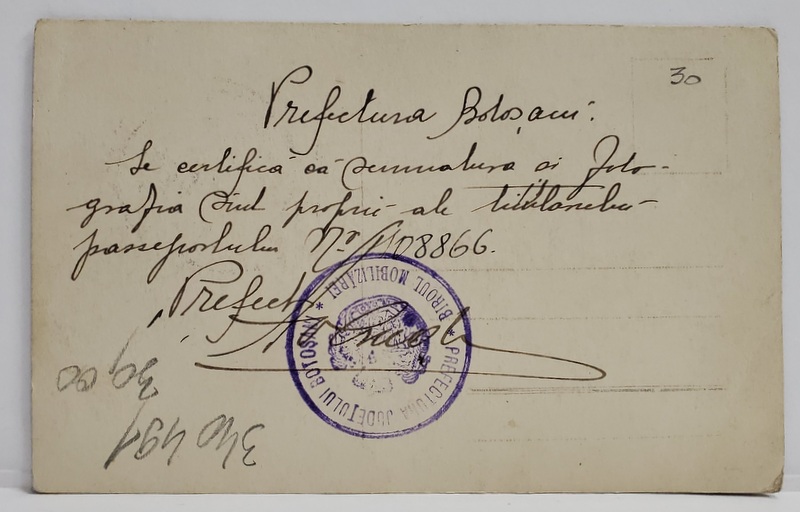 30
Prefectura Botoșani.
Se certifică că semnatura și foto-
grafia sînt proprii ale titularului
passeportului Nr 108866.
Prefect
* PREFECTURA JUDEȚULUI BOTOȘANI *
BIROUL MOBILIZĂREI